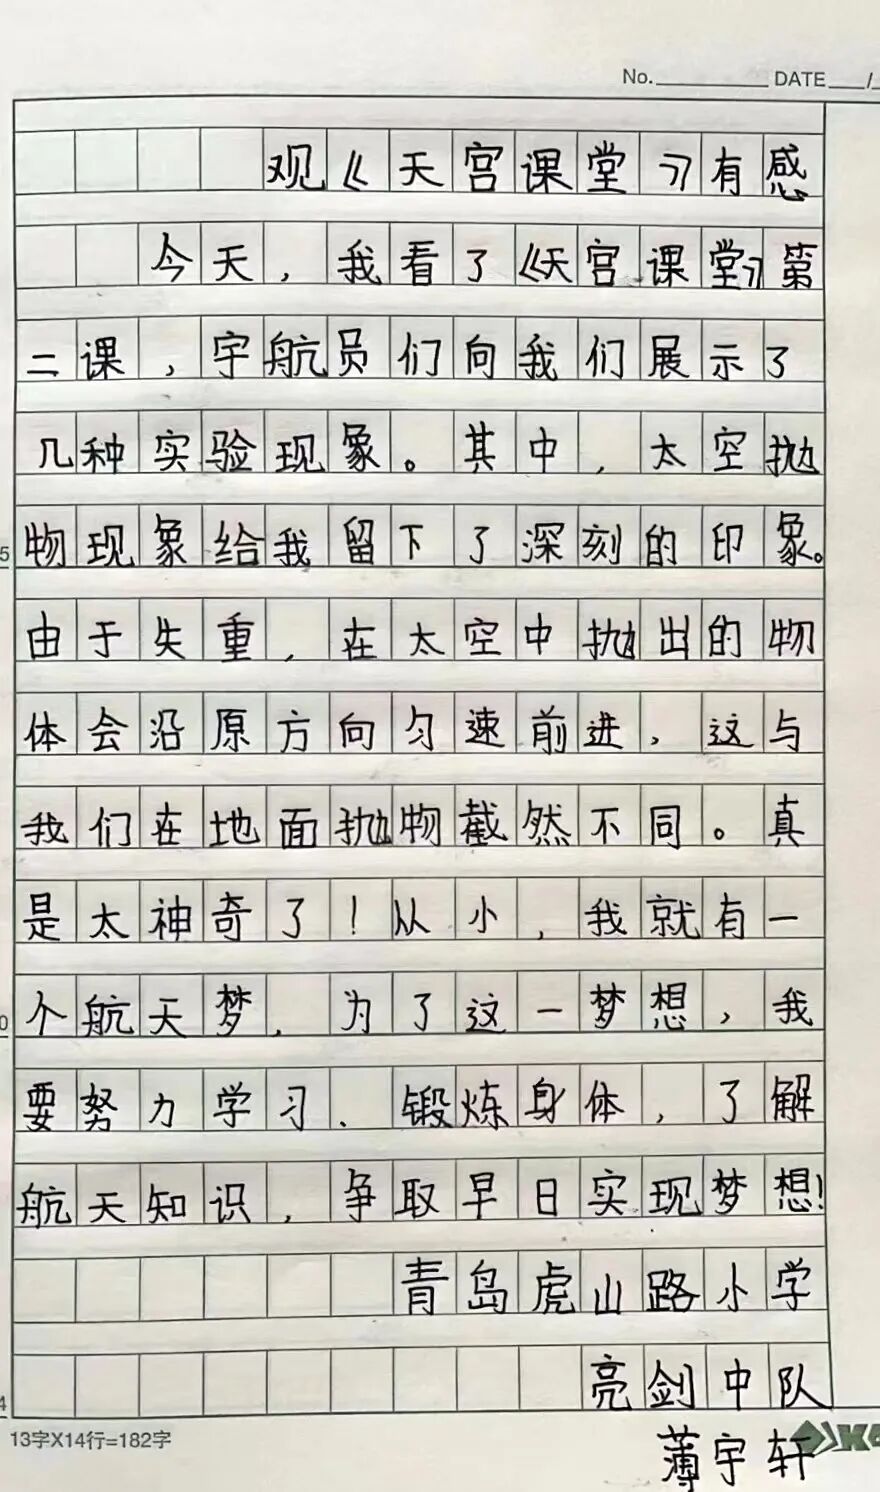 No. DATE /
观《天宫课堂》有感
今天，我看了《天宫课堂》第
二课，宇航员们向我们展示了
几种实验现象。其中，太空抛
物现象给我留下了深刻的印象。
由于失重，在太空中抛出的物
体会沿原方向匀速前进，这与
我们在地面抛物截然不同。真
是太神奇了！从小，我就有一
个航天梦，为了这一梦想，我
要努力学习、锻炼身体，了解
航天知识，争取早日实现梦想！
青岛虎山路小学
亮剑中队
13字X14行=182字
薄宇轩